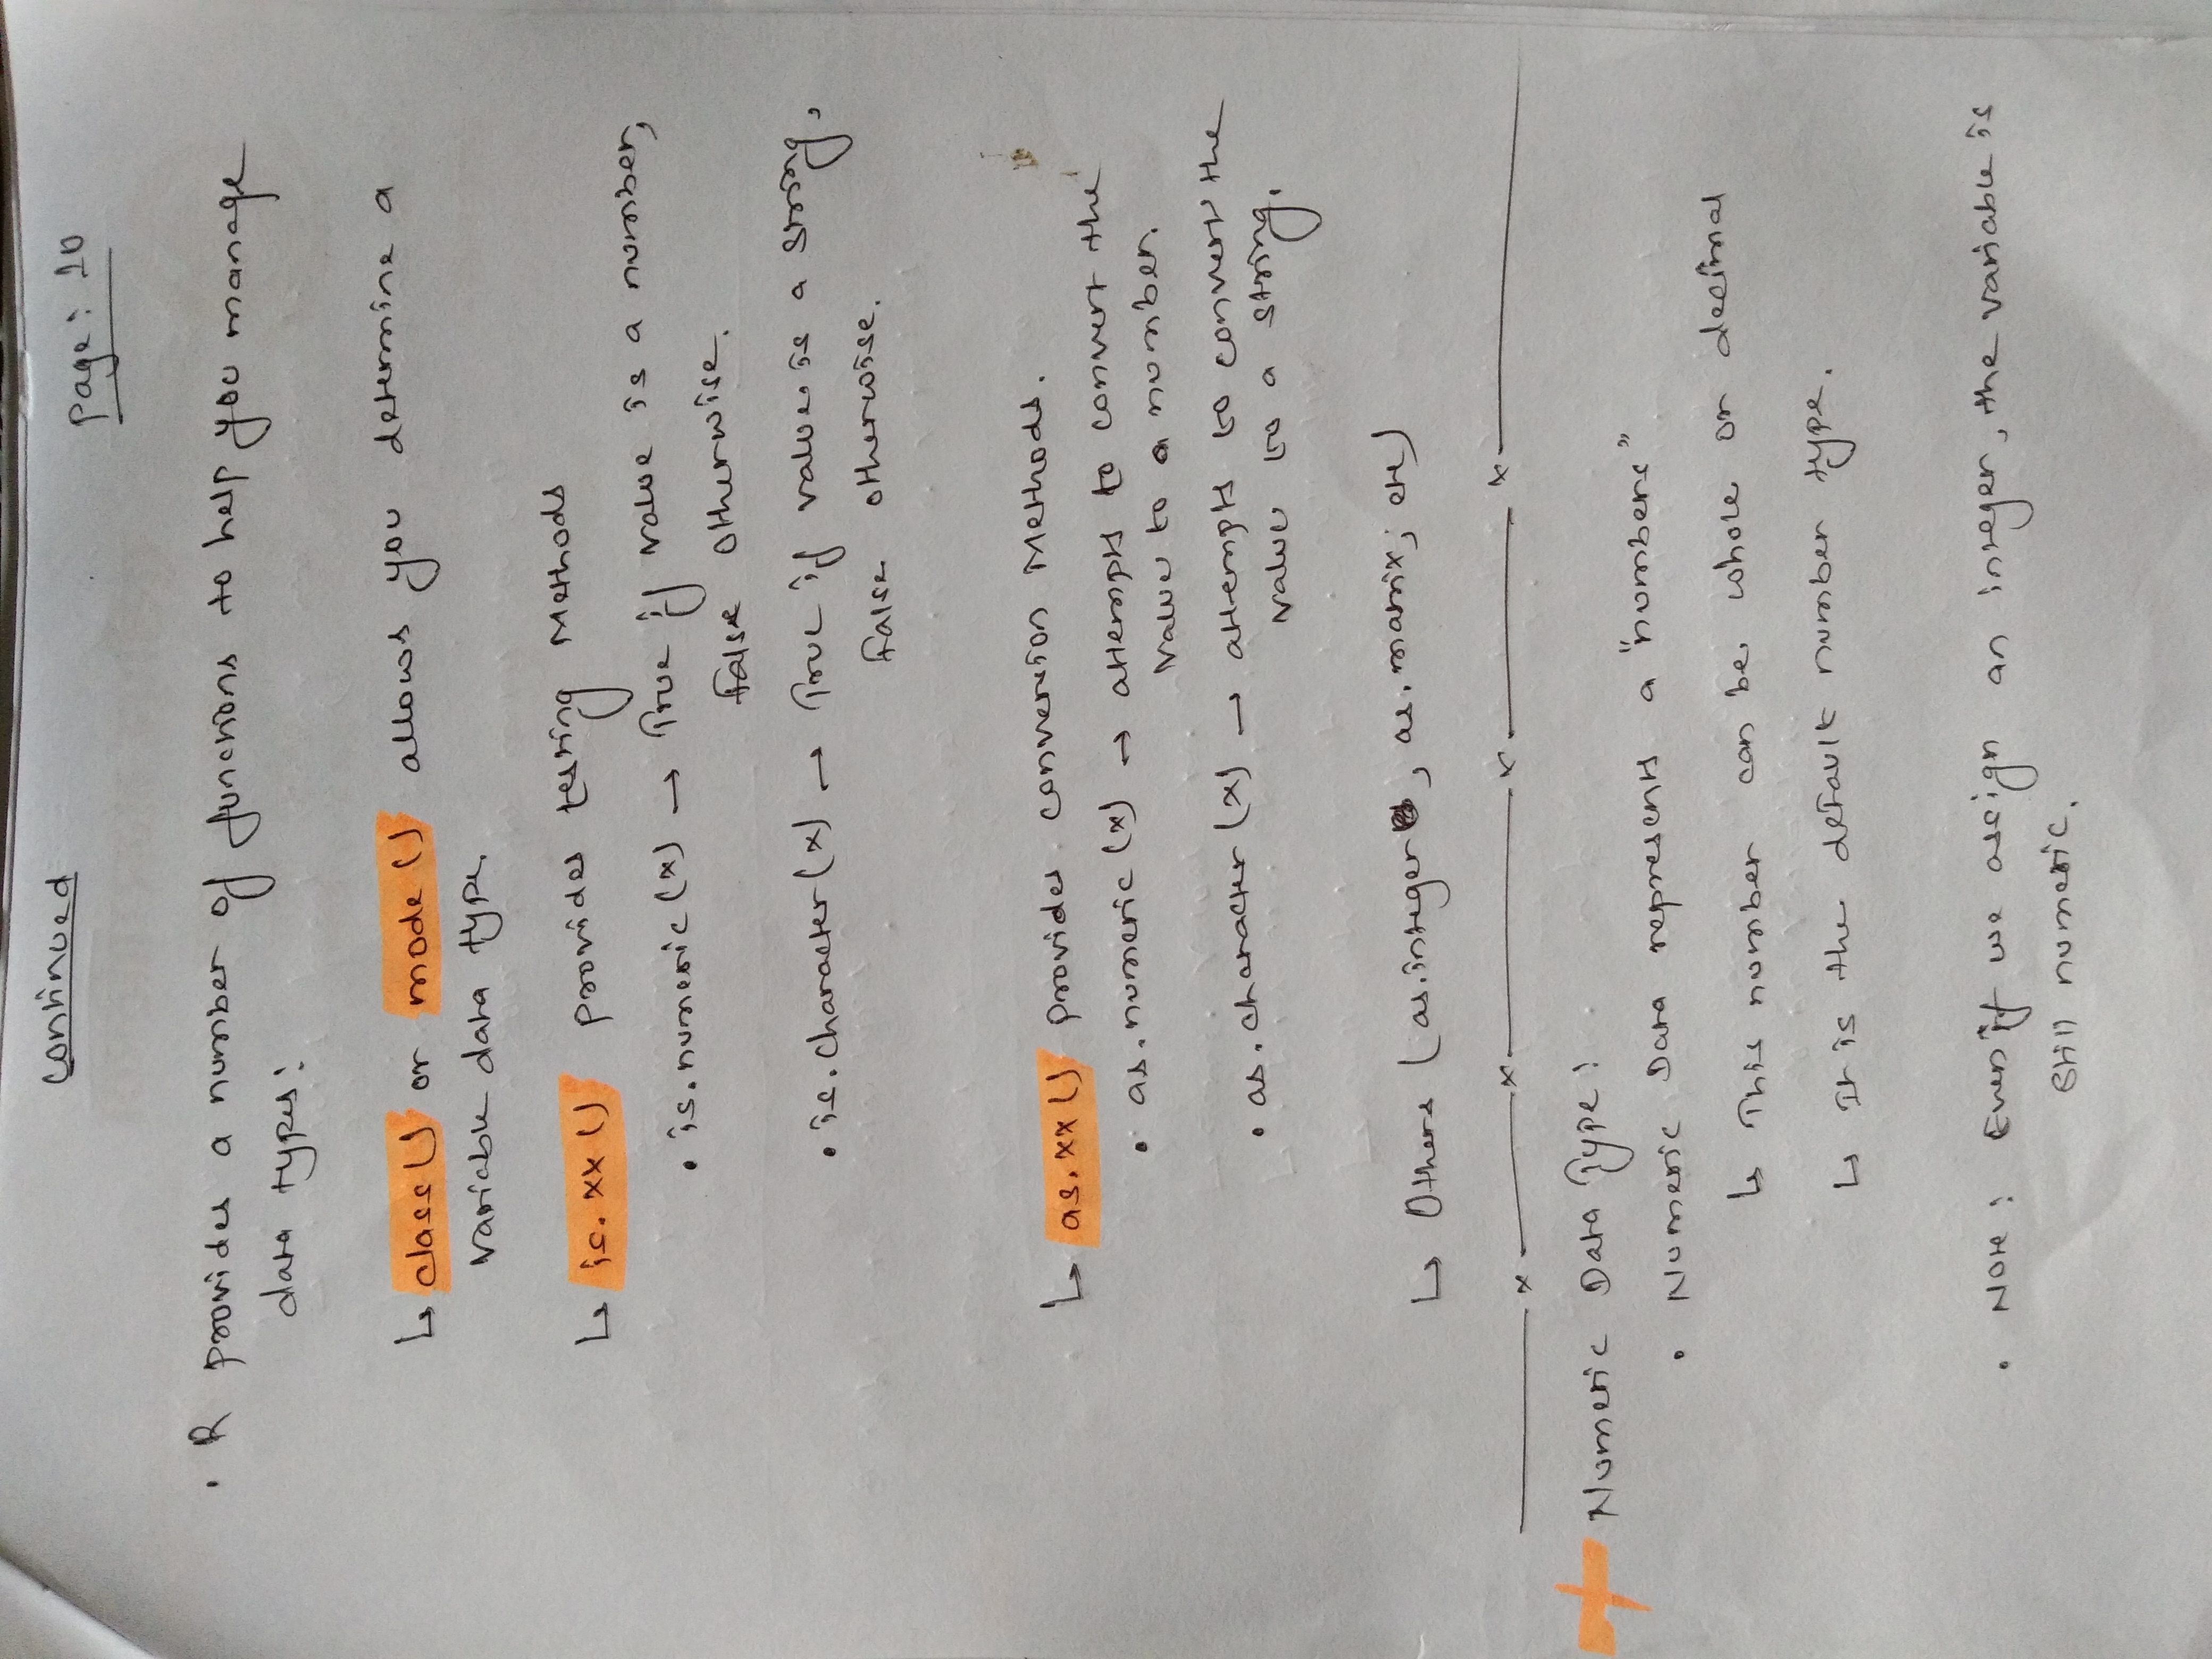 Continued
Page: 10
• R provides a number of functions to help you manage
data types:
↳ class() or mode() allows you determine a
variable data type.
↳ is.xx() provides testing Methods
• is.numeric(x) → True if value is a number,
false otherwise.
• is.character(x) → True if value is a string,
false otherwise.
↳ as.xx() provides conversion Methods.
• as.numeric(x) → attempts to convert the
value to a number.
• as.character(x) → attempts to convert the
value to a string.
↳ Others (as.integer, as.matrix; etc)
Numeric Data Type:
• Numeric Data represents a "numbers"
↳ This number can be whole or decimal
↳ It is the default number type.
• Note: Even if we assign an integer, the variable is
still numeric.